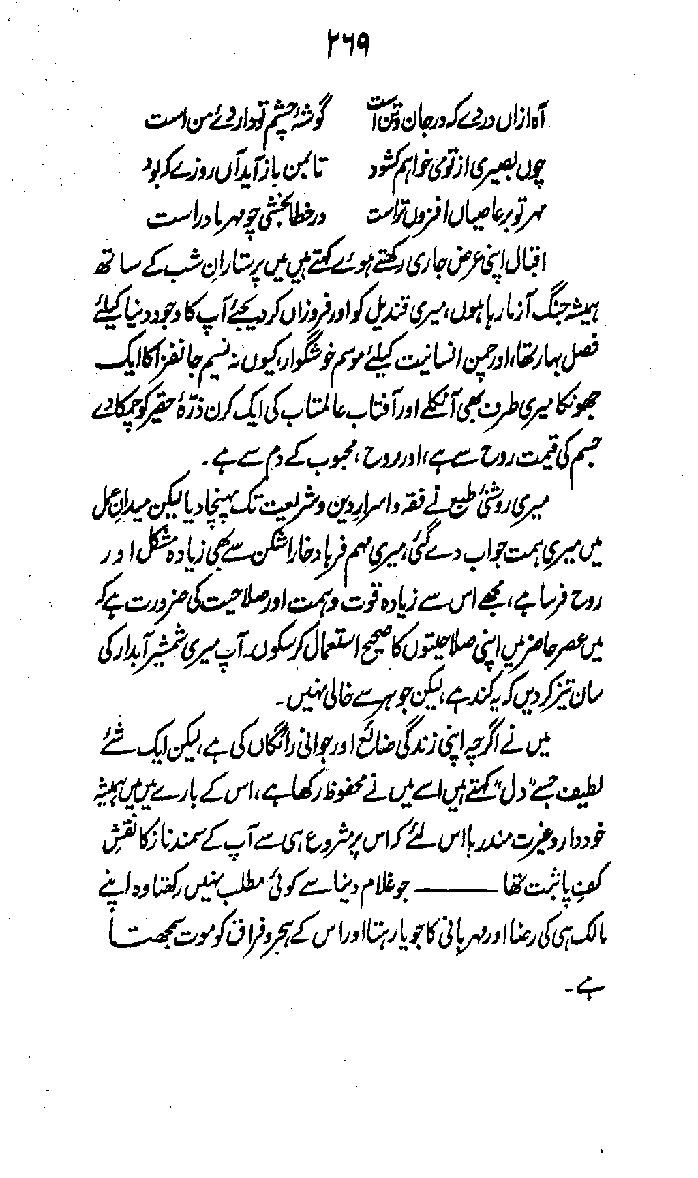 ۲۶۹
آہ ازاں دردے کہ در جان و تن است گوشۂ چشم تو داروئے من است
چوں بصیری از تو می خواہم کشود تا بمن باز آید آں روزے کہ بود
مہر تو بر عاصیاں افزوں تر است در خطا بخشی چو مہر مادر است
اقبال اپنی عرض جاری رکھتے ہوئے کہتے ہیں میں پرستارانِ شب کے ساتھ
ہمیشہ جنگ آزما رہا ہوں، میری قندیل کو اور فروزاں کر دیجئے آپ کا وجود دنیا کیلئے
فصل بہار تھا، اور چمن انسانیت کیلئے موسم خوشگوار، کیوں نہ نسیم جانفزا کا ایک
جھونکا میری طرف بھی آ نکلے اور آفتاب عالمتاب کی ایک کرن ذرۂ حقیر کو چمکا دے
جسم کی قیمت روح سے ہے، اور روح، محبوب کے دم سے ہے۔
میری روشنئ طبع نے فقہ و اسرار دین و شریعت تک پہنچا دیا لیکن میدانِ عمل
میں میری ہمت جواب دے گئی، میری مہم فرہاد خارا شکن سے بھی زیادہ مشکل اور
روح فرسا ہے، مجھے اس سے زیادہ قوت و ہمت اور صلاحیت کی ضرورت ہے کہ
میں عصر حاضر میں اپنی صلاحیتوں کا صحیح استعمال کر سکوں۔ آپ میری شمشیر آبدار کی
سان تیز کر دیں کہ یہ کند ہے، لیکن جوہر سے خالی نہیں۔
میں نے اگرچہ اپنی زندگی ضائع اور جوانی رائگاں کی ہے، لیکن ایک شئے
لطیف جسے "دل" کہتے ہیں اسے میں نے محفوظ رکھا ہے، اس کے بارے میں میں ہمیشہ
خوددار و غیرت مند رہا اس لئے کہ اس پر شروع ہی سے آپ کے سمند ناز کا نقشِ
کفِ پا ثبت تھا ——— جو غلام دنیا سے کوئی مطلب نہیں رکھتا وہ اپنے
مالک ہی کی رضا اور مہربانی کا جویا رہتا اور اس کے ہجر و فراق کو موت سمجھتا
ہے۔